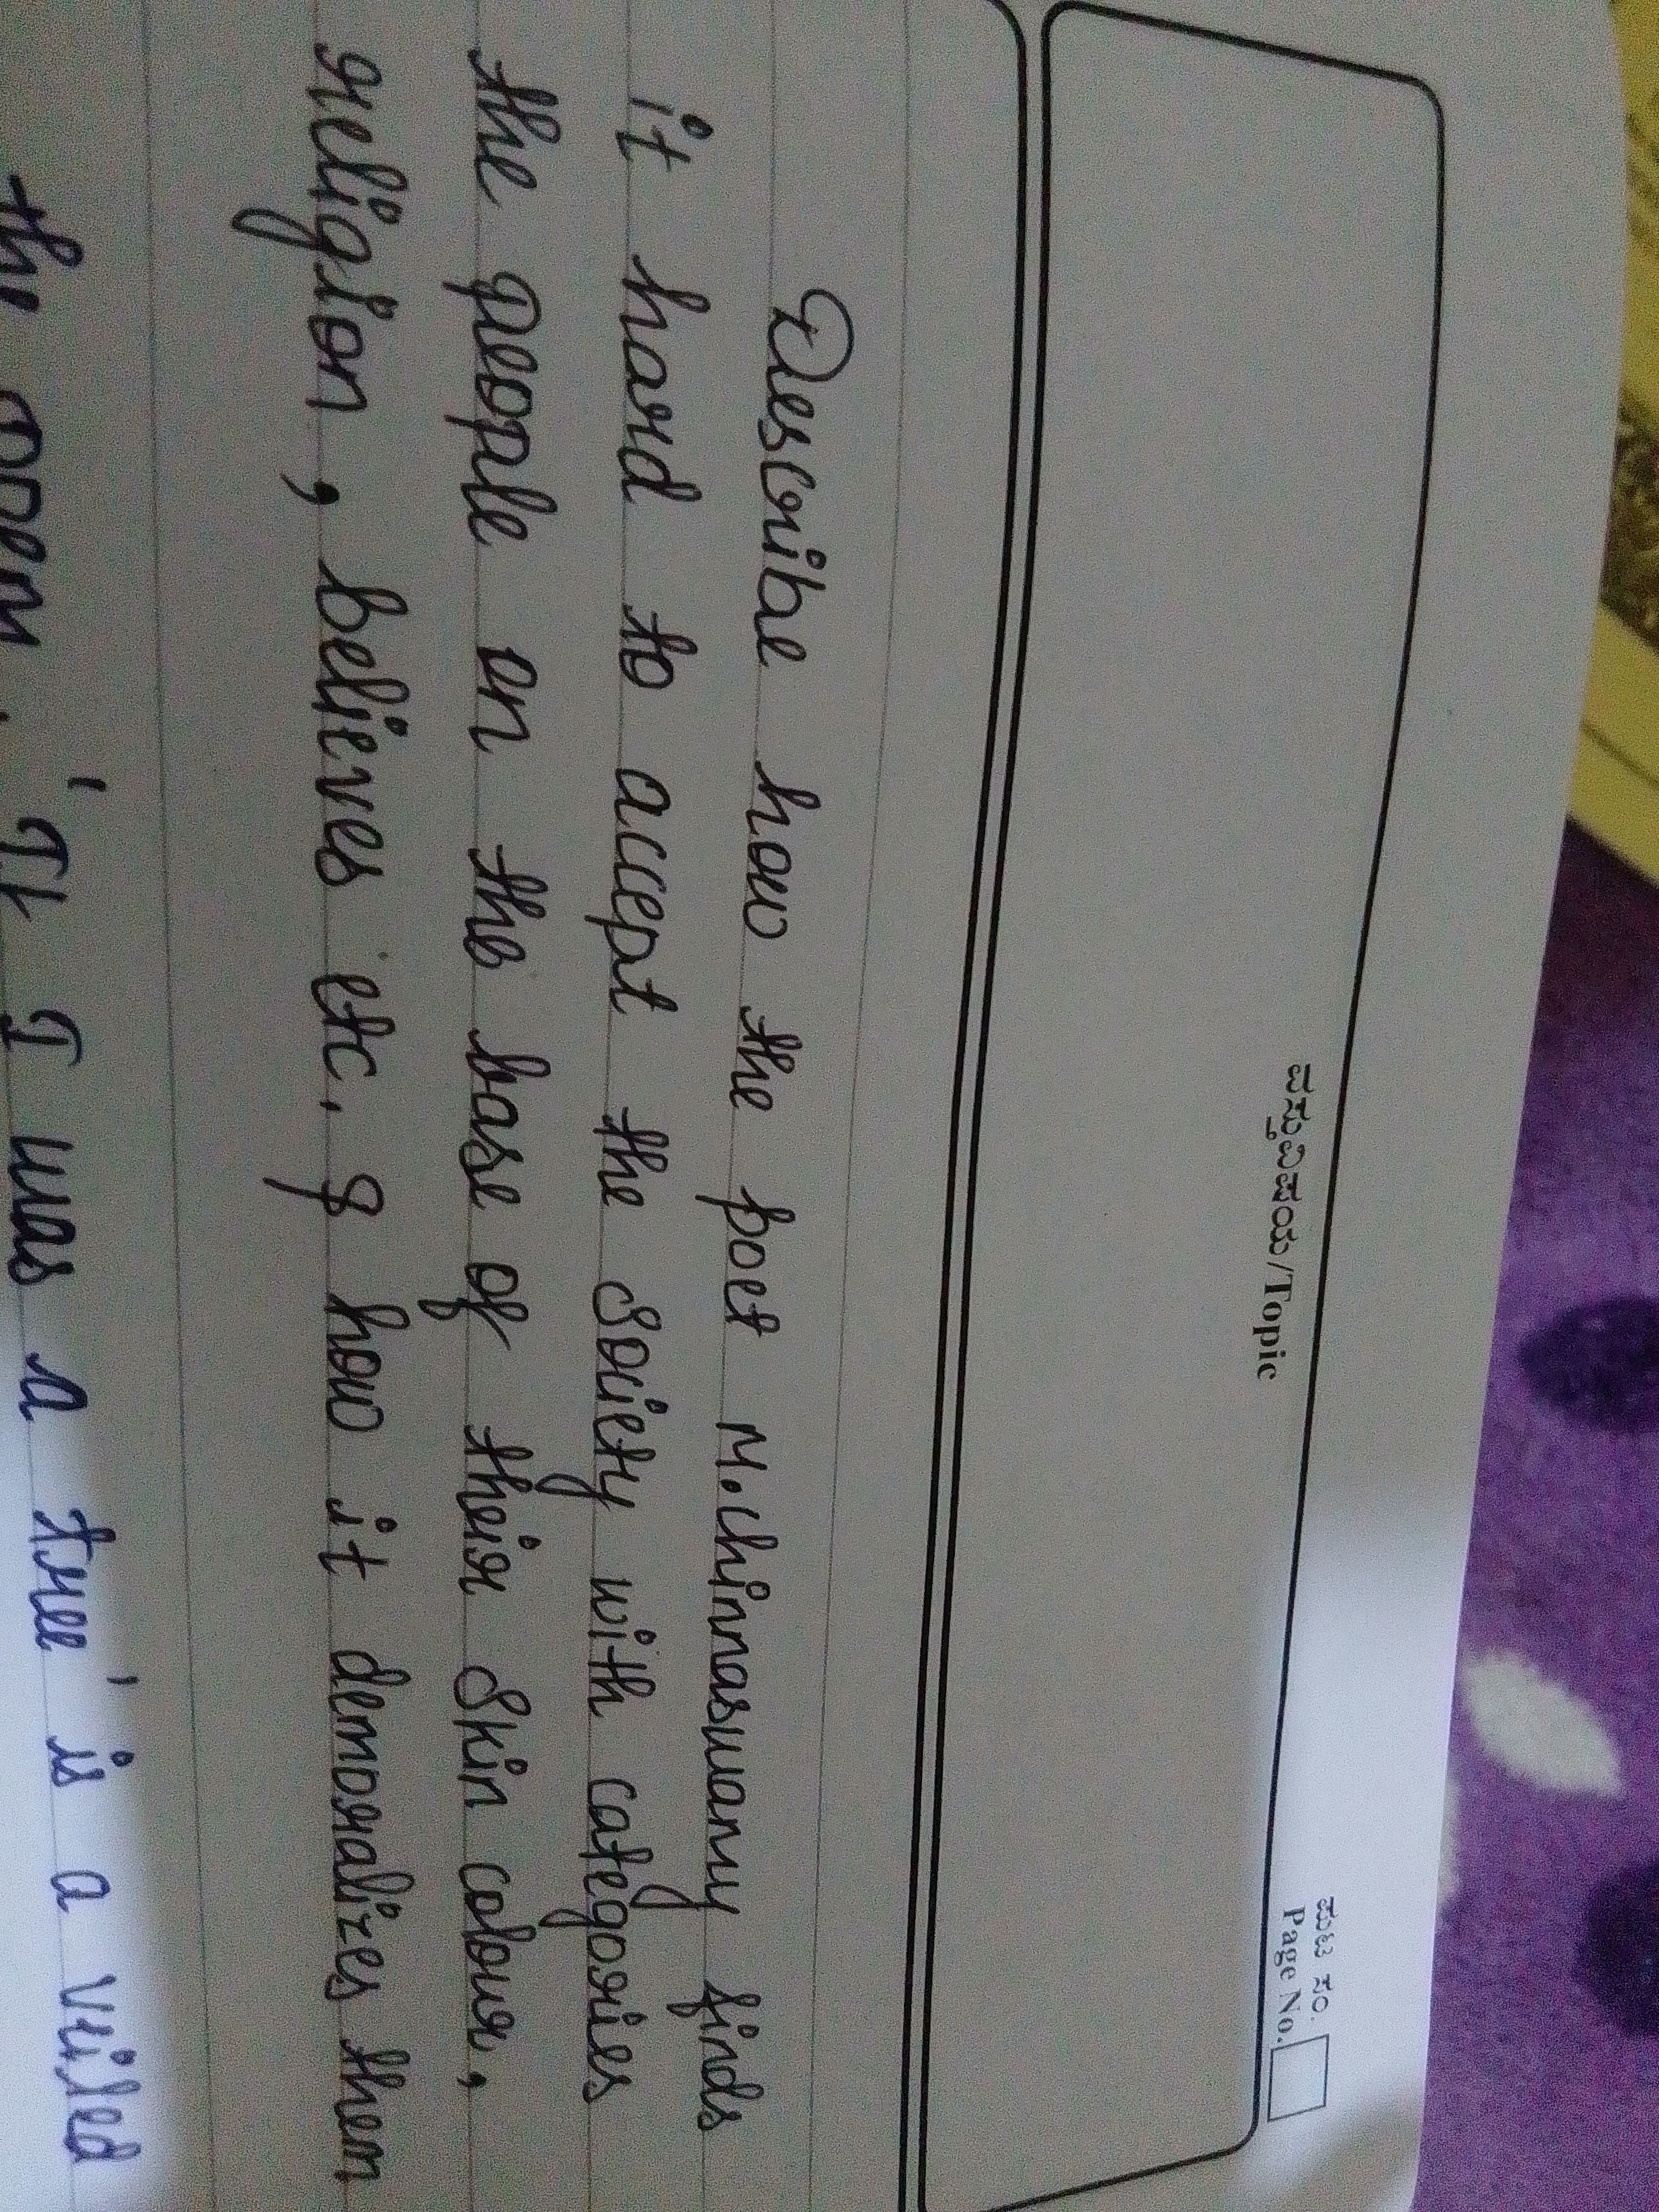 ಪಠ್ಯವಿಷಯ/Topic
ಪುಟ ಸಂ.
Page No.
Describe how the poet M.Chinnaswamy finds
it hard to accept the Society with categories
the people on the base of their Skin colour,
religion, believes etc. & how it demoralizes them
the poem. 'If I was a tree' is a veiled